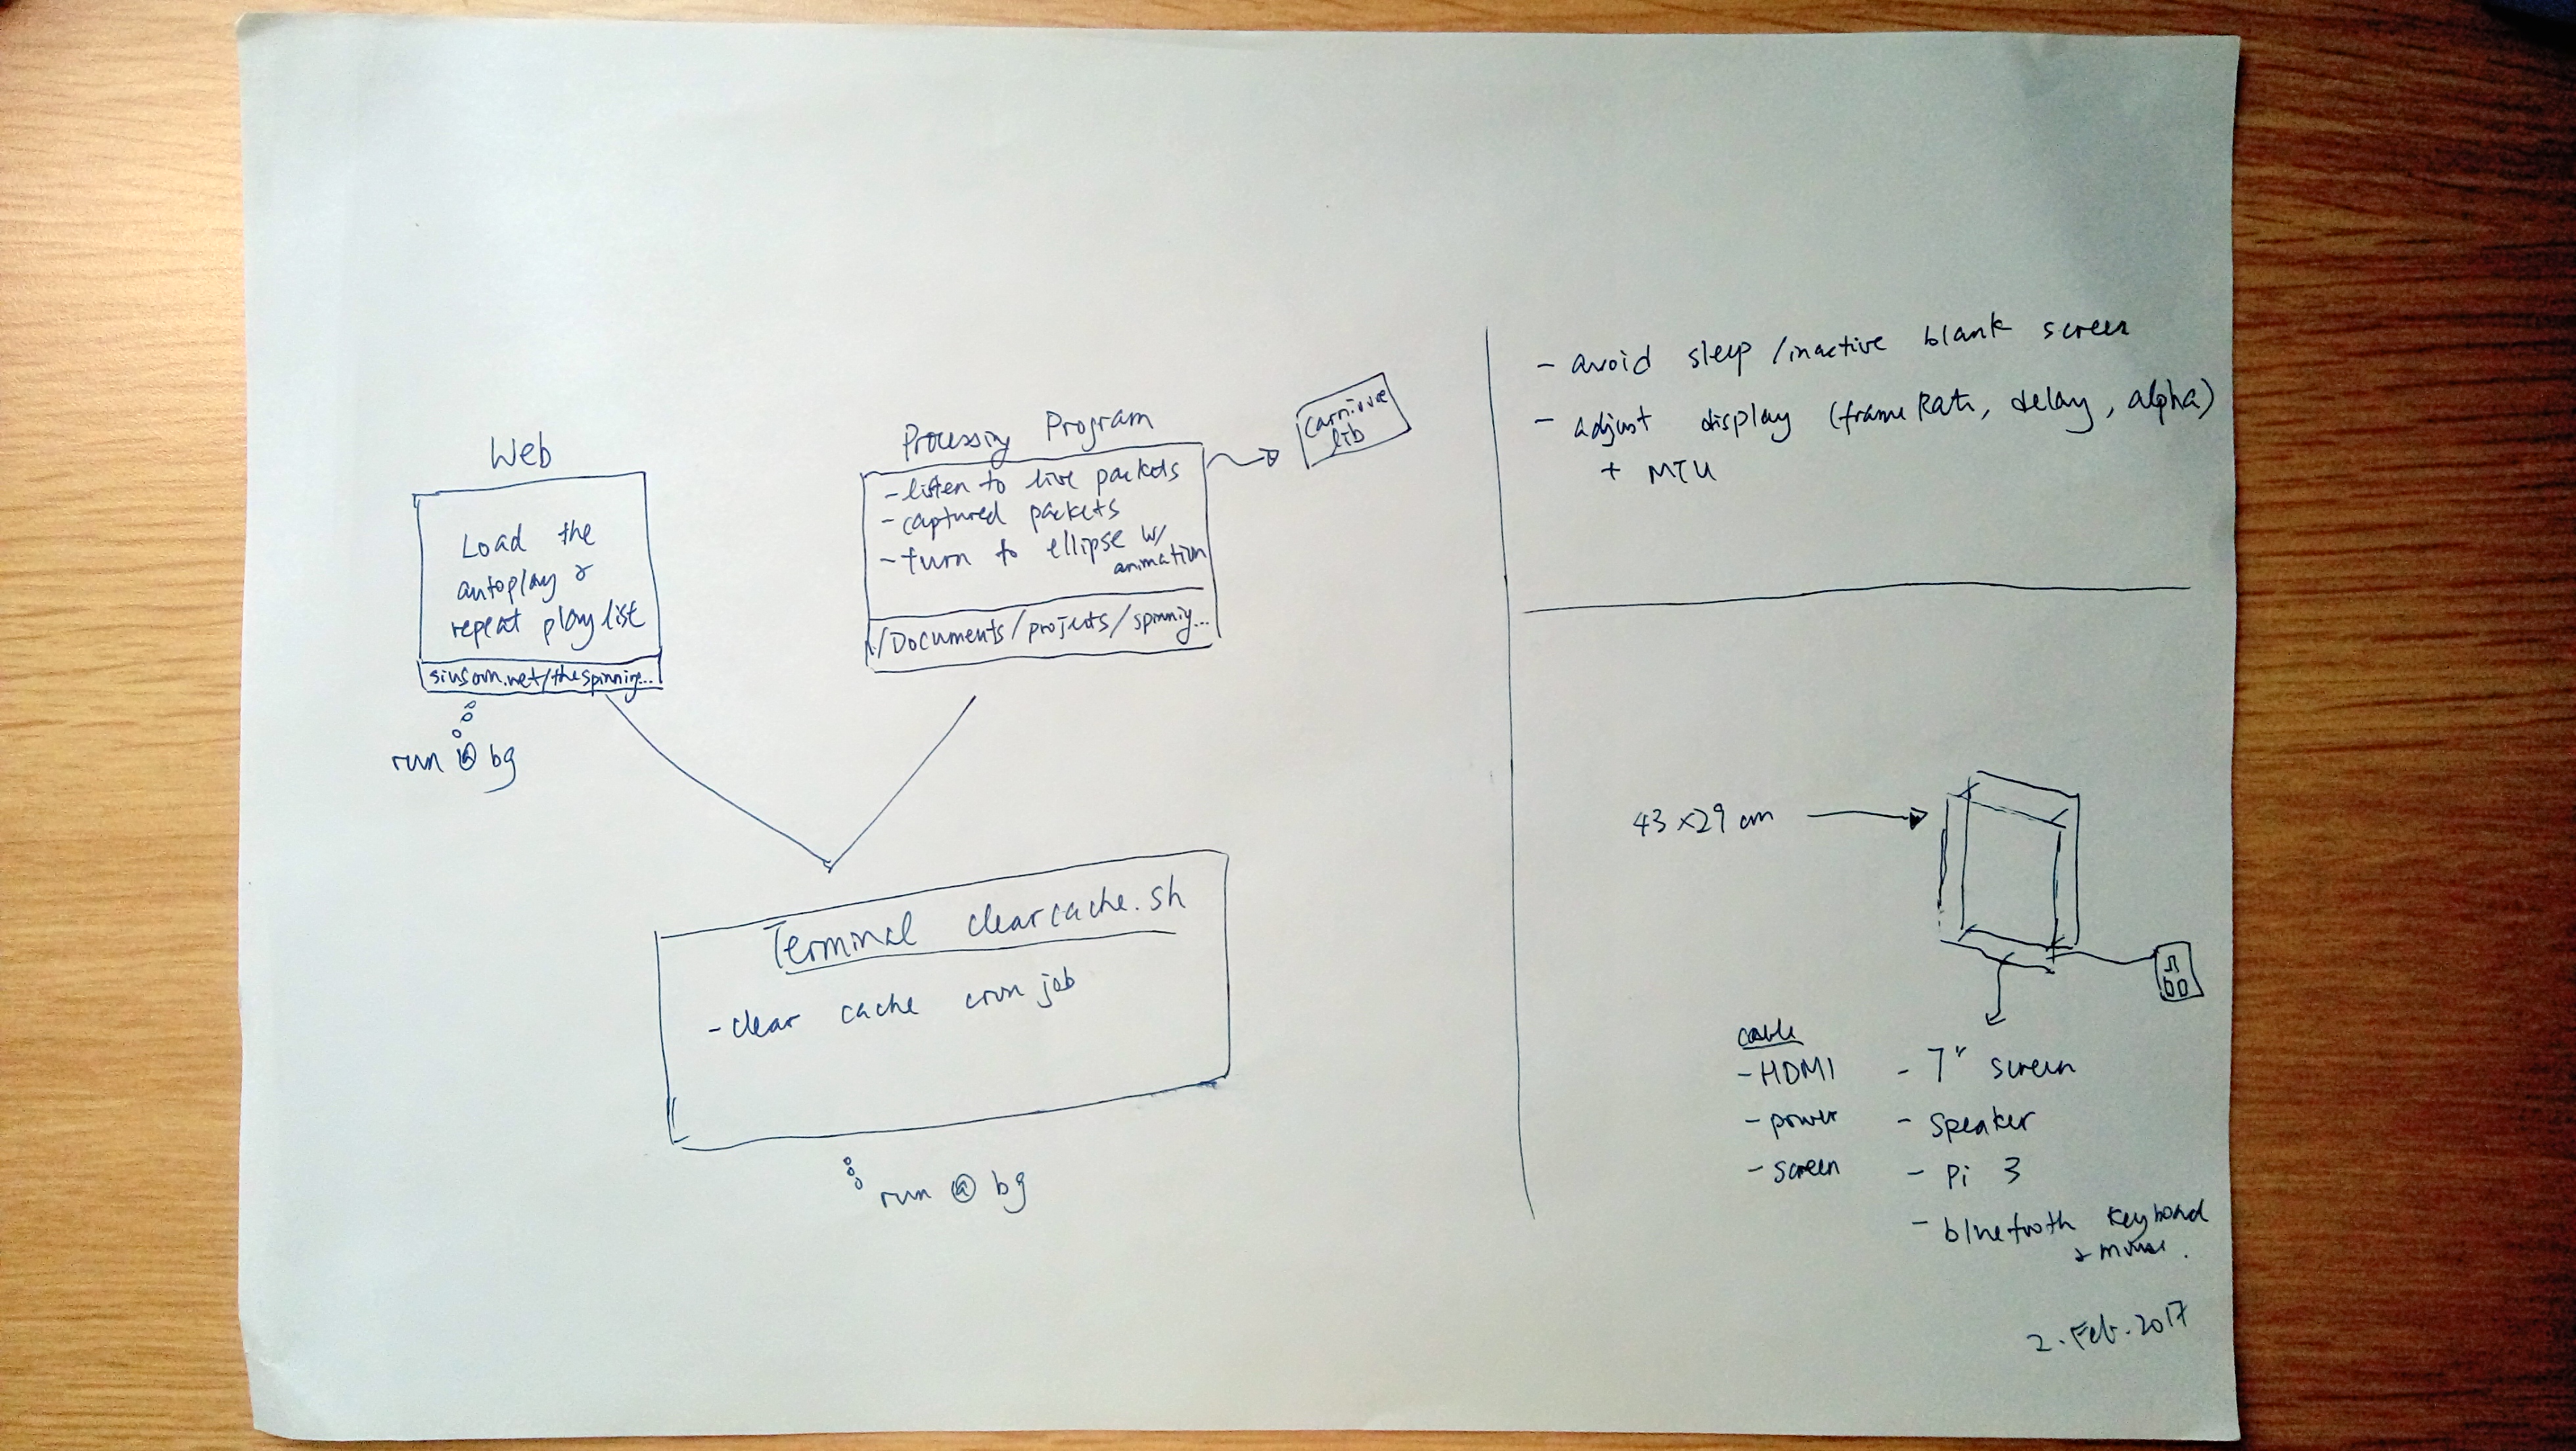 Web
Load the
autoplay &
repeat playlist
siusoon.net/thespinning...
run @ bg
Processing Program
- listen to live packets
- captured packets
- turn to ellipse w/
animation
/Documents/projects/spinnig...
carnivore
lib
Terminal clearcache.sh
- clear cache cron job
run @ bg
- avoid sleep /inactive blank screen
- adjust display (frameRate, delay, alpha)
+ MTU
43 x 29 cm
cable
- HDMI
- power
- screen
- 7" screen
- speaker
- Pi 3
- bluetooth keyboard
& mouse.
2. Feb. 2017